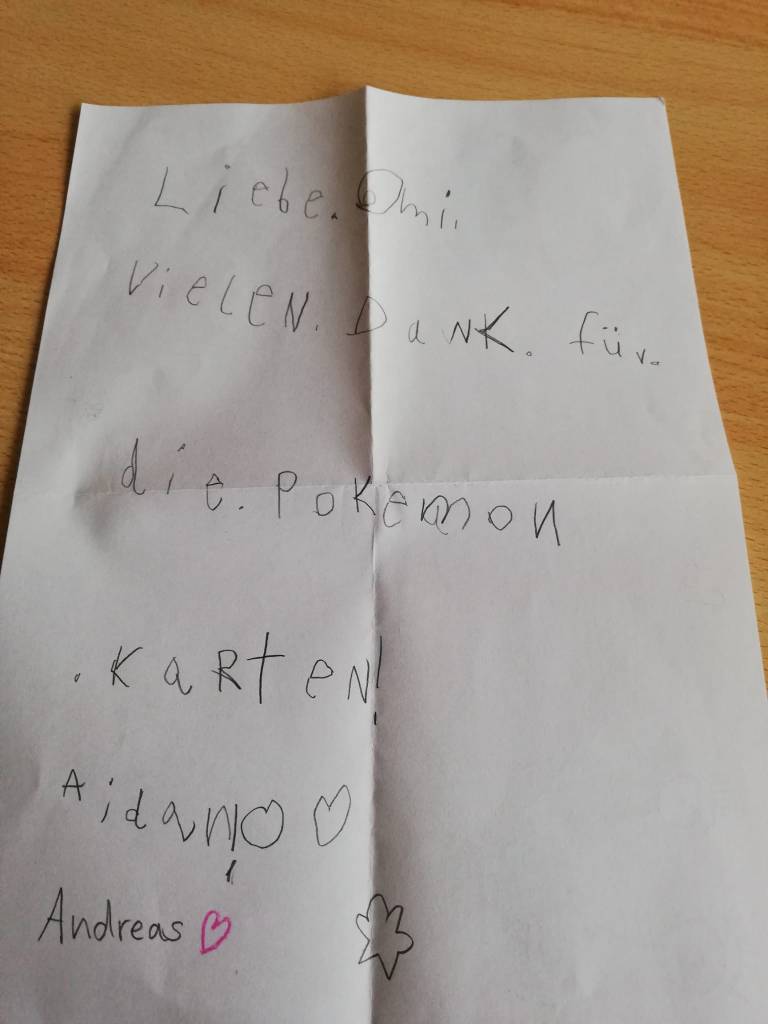 Liebe. Omi.
VieLEN. DaNK. für.
die. POKemon
. KaRtEN!
Aidan! ♡ ♡
Andreas ♡